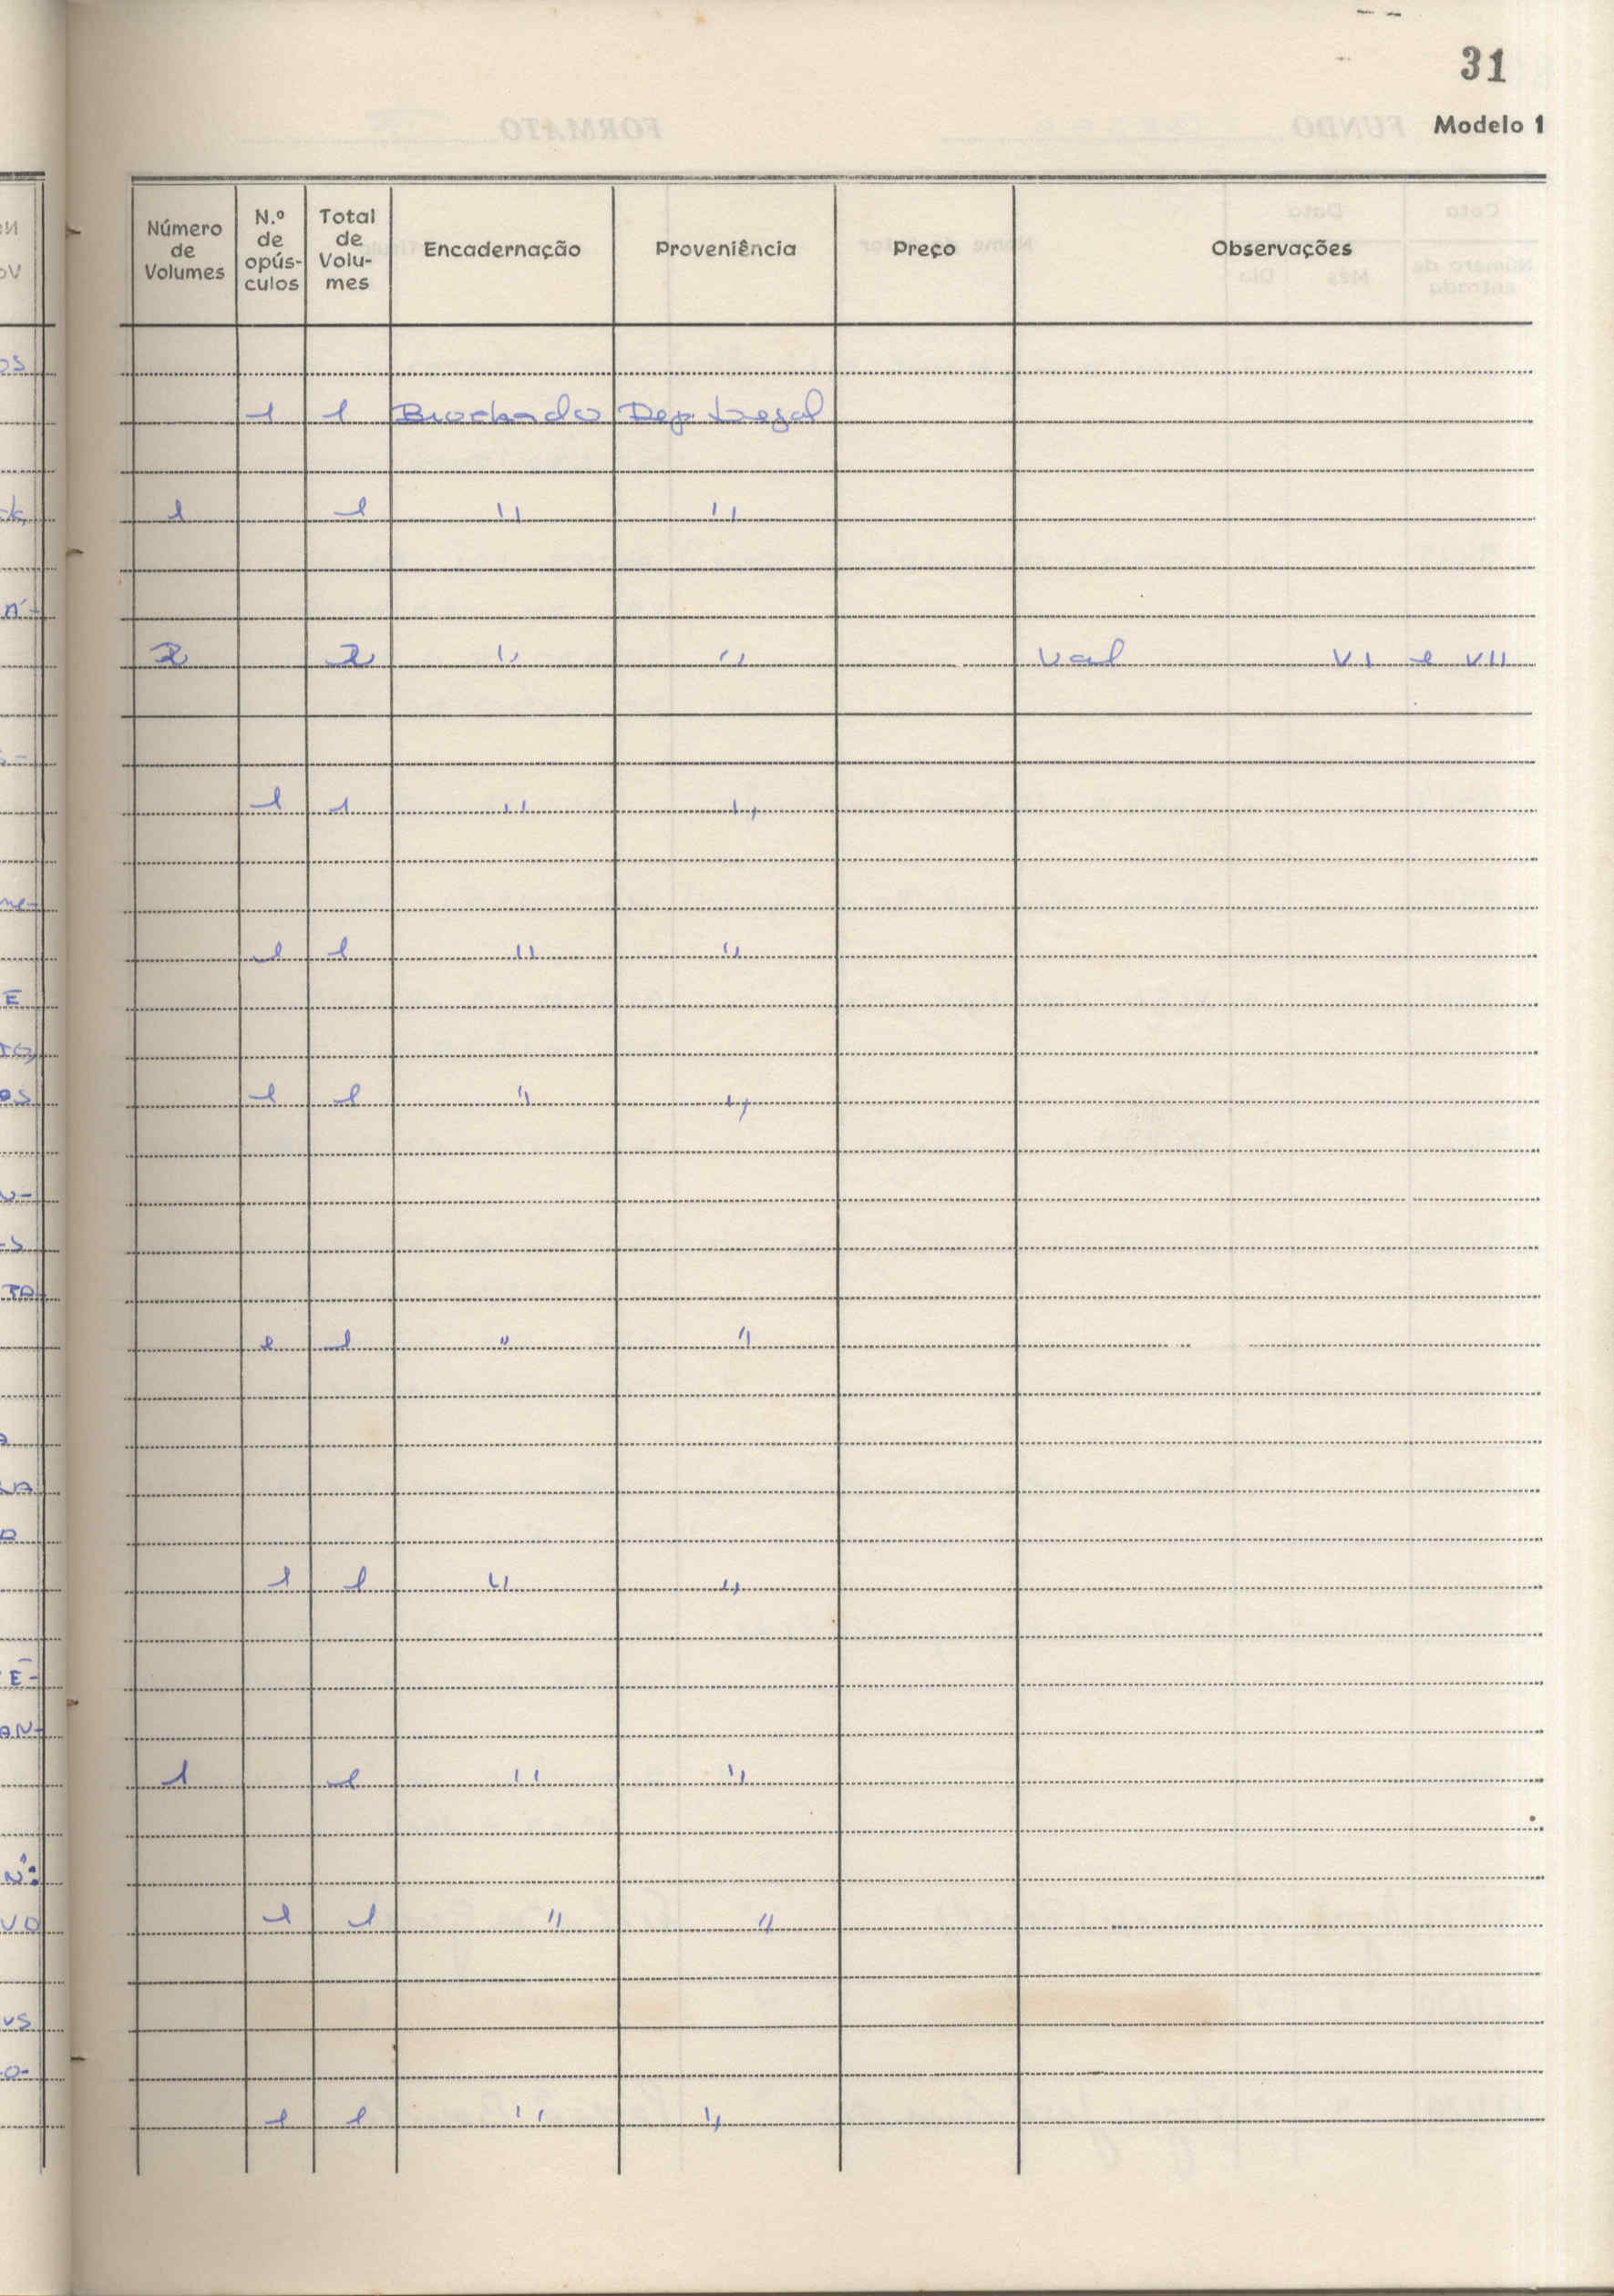 31
Modelo 1
Número de Volumes N.º de opús-culos Total de Volu-mes Encadernação Proveniência Preço Observações
1 1 Brochado Dep. Legal
1 1 " "
2 2 " " Vol VI e VII
1 1 " "
1 1 " "
1 1 " "
1 1 " "
1 1 " "
1 1 " "
1 1 " "
1 1 " "